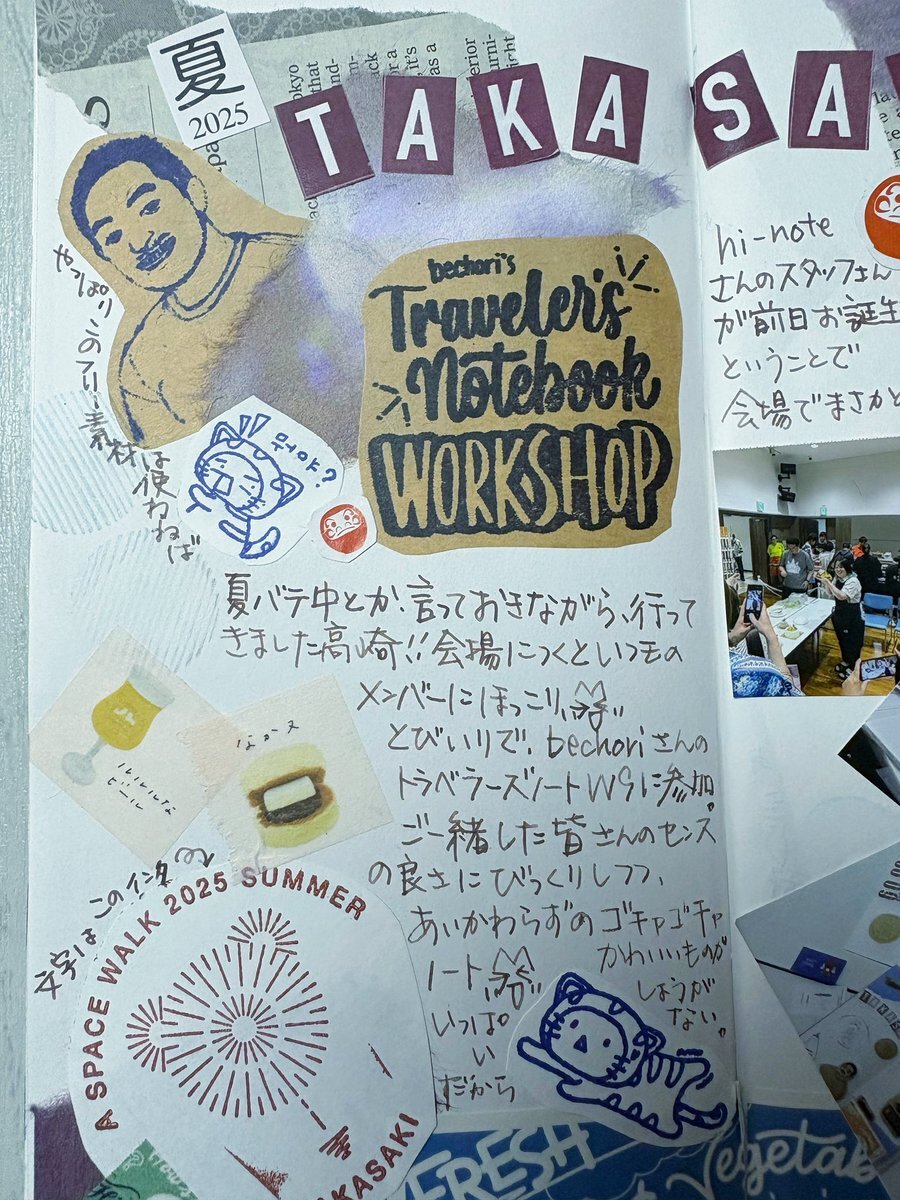 夏
2025
TAKASA
bechori's
Traveler's
Notebook
WORKSHOP
やっぱりこのフリー素材は使わねば
뭐야?
hi-note
さんのスタッフさん
が前日お誕生
ということで
会場でまさかと
夏バテ中とか言っておきながら、行って
きました高崎!!会場につくといつもの
メンバーにほっこり
とびいりで、bechoriさんの
トラベラーズノートWSに参加。
ご一緒した皆さんのセンス
の良さにびっくりしつつ、
あいかわらずのゴチャゴチャ
ノート
かわいいものが
いっぱい
だから
しょうが
ない。
ルルルな
ビール
なかヌ
文字はこのインク
A SPACE WALK 2025 SUMMER
AKASAKI
FRESH
Vegetab